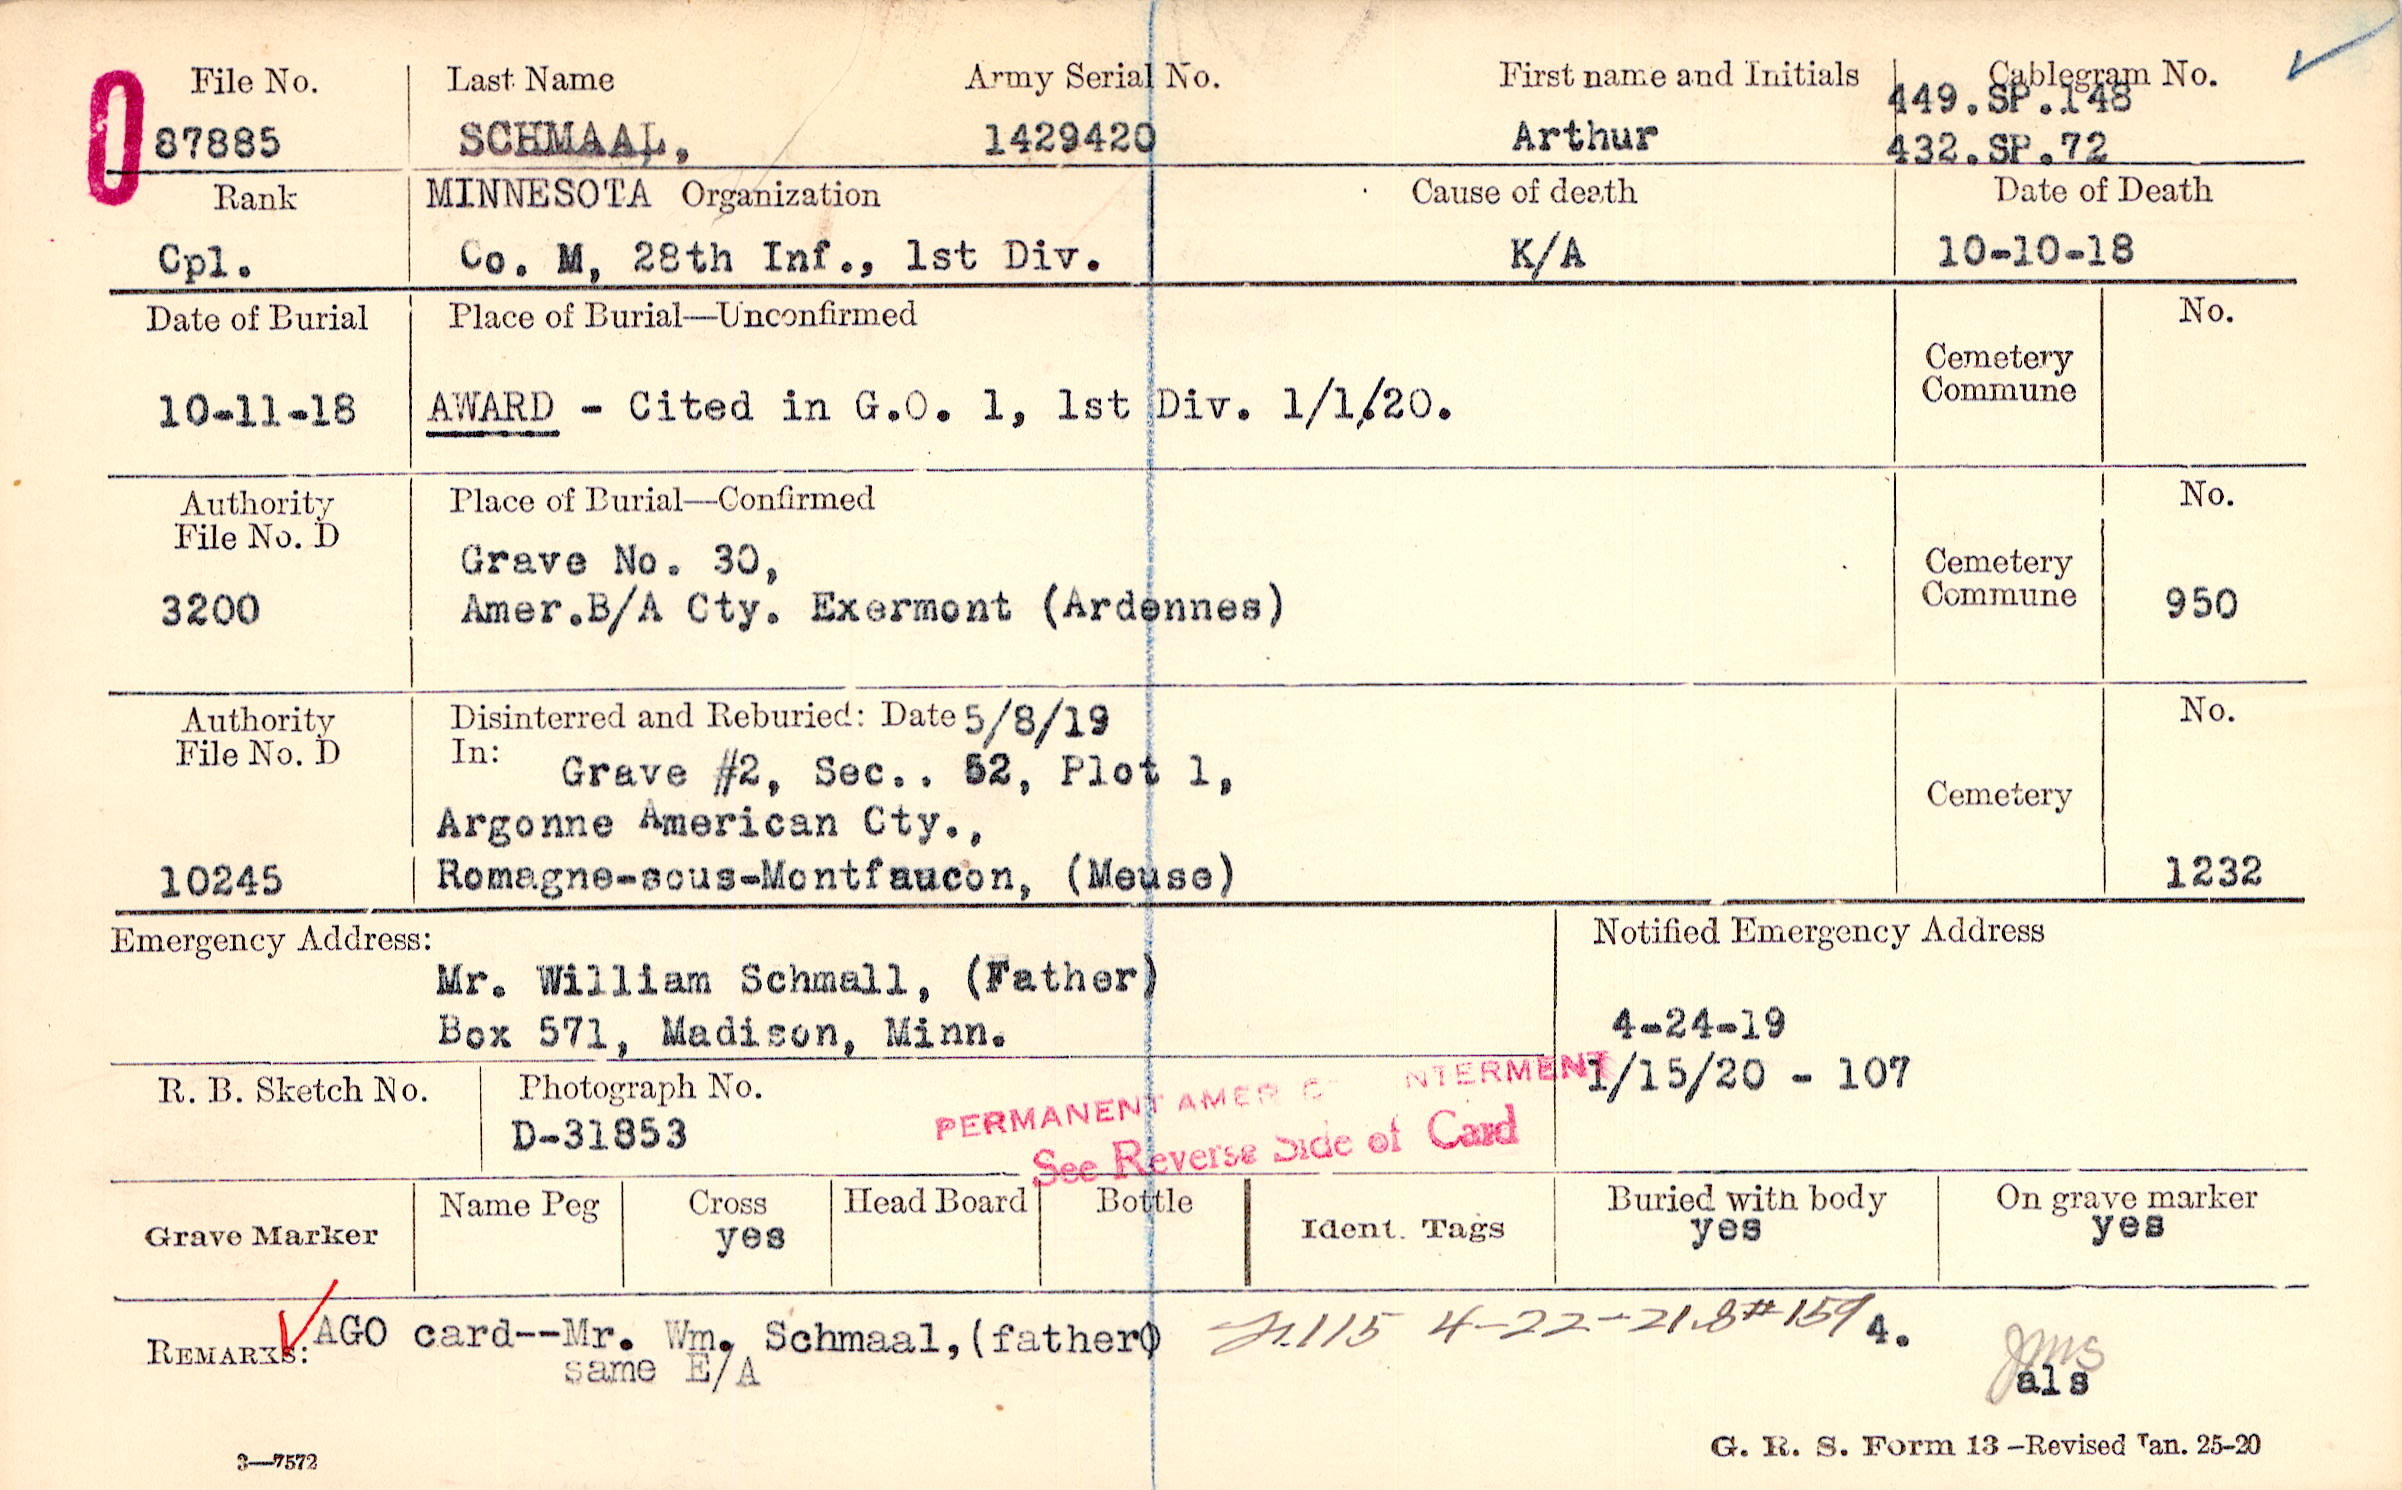 File No. Last Name Army Serial No. First name and Initials Cablegram No.
449.SP.148
87885 SCHMAAL, 1429420 Arthur 432.SP.72
Rank MINNESOTA Organization Cause of death Date of Death
Cpl. Co. M, 28th Inf., 1st Div. K/A 10-10-18
Date of Burial Place of Burial—Unconfirmed No.
Cemetery
Commune
10-11-18 AWARD - Cited in G.O. 1, 1st Div. 1/1/20.
Authority Place of Burial—Confirmed No.
File No. D
Grave No. 30, Cemetery
3200 Amer.B/A Cty. Exermont (Ardennes) Commune 950
Authority Disinterred and Reburied: Date 5/8/19 No.
File No. D In:
Grave #2, Sec.. 52, Plot 1,
Argonne American Cty., Cemetery
10245 Romagne-sous-Montfaucon, (Meuse) 1232
Emergency Address: Notified Emergency Address
Mr. William Schmall, (Father)
Box 571, Madison, Minn. 4-24-19
1/15/20 - 107
R. B. Sketch No. Photograph No.
D-31853
PERMANENT AMER NTERMENT
See Reverse Side of Card
Grave Marker Name Peg Cross Head Board Bottle Ident. Tags Buried with body On grave marker
yes yes yes
REMARKS: AGO card--Mr. Wm. Schmaal,(father) 115 4-22-21.8#159 4.
same E/A
JMS
als
3—7572 G. R. S. Form 13—Revised Jan. 25-20